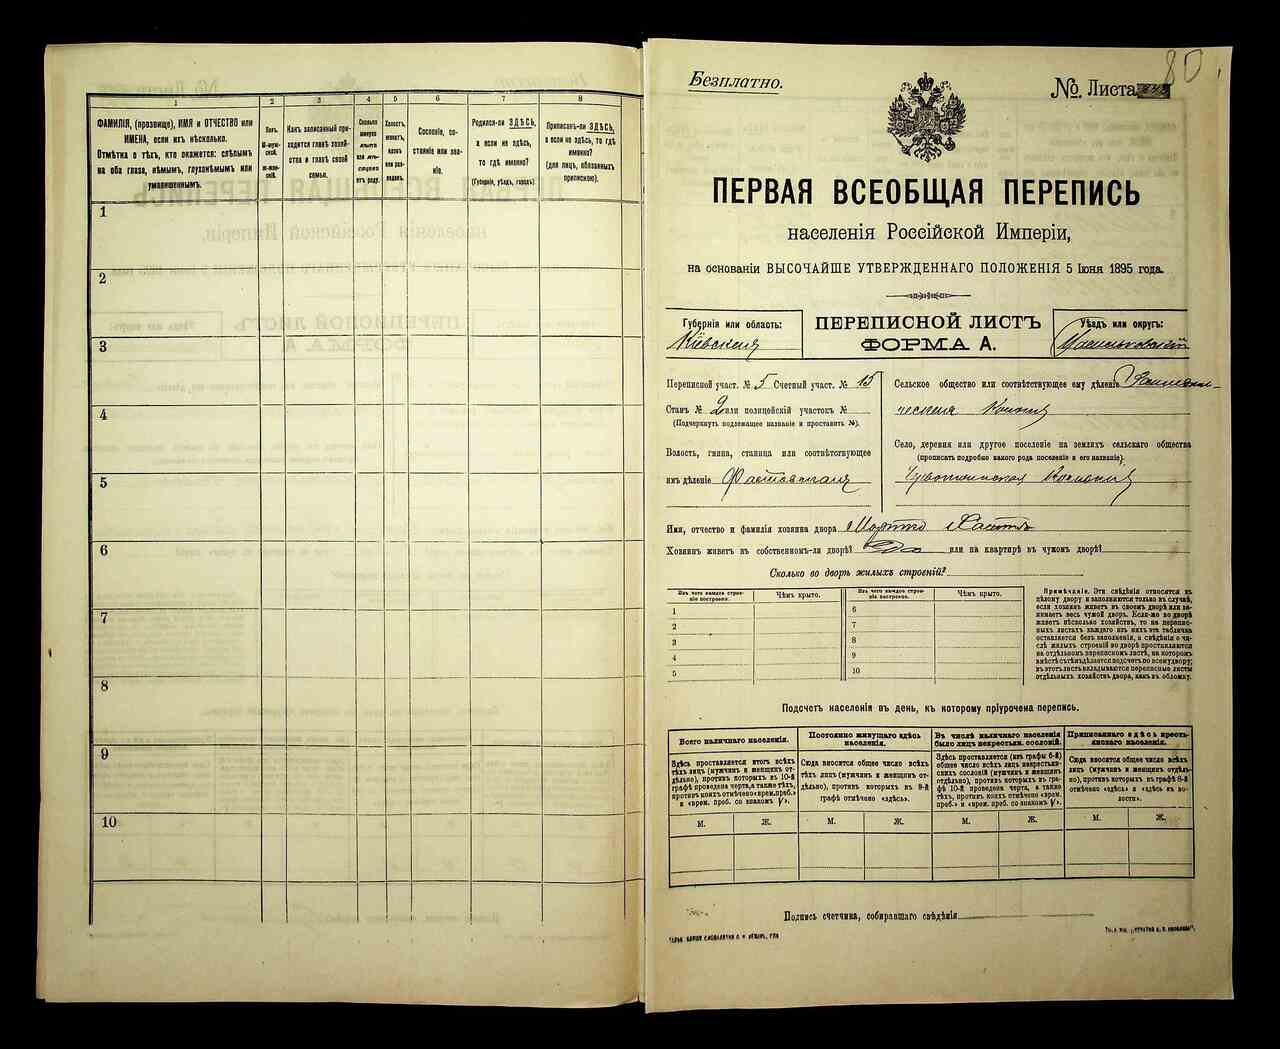 1
2
3
4
5
6
7
8
ФАМИЛІЯ, (прозвище), ИМЯ и ОТЧЕСТВО или
ИМЕНА, если ихъ нѣсколько.
Отмѣтка о тѣхъ, кто окажется: слѣпымъ
на оба глаза, нѣмымъ, глухонѣмымъ или
умалишеннымъ.
Полъ.
М-муж-
ской.
Ж-жен-
скій.
Какъ записанный при-
ходится главѣ хозяй-
ства и главѣ своей
семьи.
Сколько
минуло
лѣтъ
или мѣ-
сяцевъ
отъ роду.
Холостъ,
женатъ,
вдовъ
или раз-
веденъ.
Сословіе, со-
стояніе или зва-
ніе.
Родился-ли ЗДѢСЬ,
а если не здѣсь,
то гдѣ именно?
(Губернія, уѣздъ, городъ).
Приписанъ-ли ЗДѢСЬ,
а если не здѣсь, то гдѣ
именно?
(для лицъ, обязанныхъ
припискою).
1
2
3
4
5
6
7
8
9
10
80
Безплатно.
№ Листа
ПЕРВАЯ ВСЕОБЩАЯ ПЕРЕПИСЬ
населенія Россійской Имперіи,
на основаніи ВЫСОЧАЙШЕ УТВЕРЖДЕННАГО ПОЛОЖЕНІЯ 5 Іюня 1895 года.
Губернія или область:
Кіевская
ПЕРЕПИСНОЙ ЛИСТЪ
ФОРМА А.
Уѣздъ или округъ:
Васильковскій
Переписной участ. № 5 Счетный участ. № 15
Станъ № 2 или полицейскій участокъ №
(Подчеркнуть подлежащее названіе и проставить №).
Волость, гмина, станица или соотвѣтсгвующее
имъ дѣленіе Фастовская
Сельское общество или соотвѣтствующее ему дѣленіе
Колонія
Село, деревня или другое поселеніе на земляхъ сельскаго общества
(прописать подробно какого рода поселеніе и его названіе).
Колонія
Имя, отчество и фамилія хозяина двора
Хозяинъ живетъ въ собственномъ-ли дворѣ? Да или на квартирѣ въ чужомъ дворѣ?
Сколько во дворѣ жилыхъ строеній?
Изъ чего каждое строе-
ніе построено.
Чѣмъ крыто.
Изъ чего каждое строе-
ніе построено.
Чѣмъ крыто.
1
2
3
4
5
6
7
8
9
10
Примѣчаніе. Эти свѣдѣнія относятся къ
цѣлому двору и заполняются только въ случаѣ,
если хозяинъ живетъ въ своемъ дворѣ или за-
нимаетъ весь чужой дворъ. Если-же во дворѣ
живетъ нѣсколько хозяйствъ, то на перепис-
ныхъ листахъ каждаго изъ нихъ эта табличка
оставляется безъ заполненія, а свѣдѣнія о чи-
слѣ жилыхъ строеній во дворѣ проставляются
на отдѣльномъ переписномъ листѣ, на которомъ
вмѣстѣ съ тѣмъ дѣлается подсчетъ по всему двору;
въ этотъ листъ вкладываются переписные листы
отдѣльныхъ хозяйствъ двора, какъ въ обложку.
Подсчетъ населенія въ день, къ которому пріурочена перепись.
Всего наличнаго населенія.
Здѣсь проставляется итогъ всѣхъ
тѣхъ лицъ (мужчинъ и женщинъ от-
дѣльно), противъ которыхъ въ 10-й
графѣ проведена черта, а также тѣхъ,
противъ коихъ отмѣчено «врем. преб.»
и «врем. преб. со знакомъ V».
Постоянно живущаго здѣсь
населенія.
Сюда вносится общее число всѣхъ
тѣхъ лицъ (мужчинъ и женщинъ от-
дѣльно), противъ которыхъ въ 9-й
графѣ отмѣчено «здѣсь».
Въ числѣ наличнаго населенія
было лицъ некрестьян. сословій.
Здѣсь проставляется (изъ графы 6-й)
общее число всѣхъ лицъ некрестьян-
скихъ сословій (мужчинъ и женщинъ
отдѣльно), противъ которыхъ въ гра-
фѣ 10-й проведена черта, а также
тѣхъ, противъ коихъ отмѣчено «врем.
преб.» и «врем. преб. со знакомъ V».
Приписаннаго здѣсь кресть-
янскаго населенія.
Сюда вносится общее число всѣхъ
лицъ (мужчинъ и женщинъ отдѣль-
но), противъ которыхъ въ графѣ 8-й
отмѣчено «здѣсь» и «здѣсь въ во-
лости».
М.
Ж.
М.
Ж.
М.
Ж.
М.
Ж.
Подпись счетчика, собиравшаго свѣдѣнія